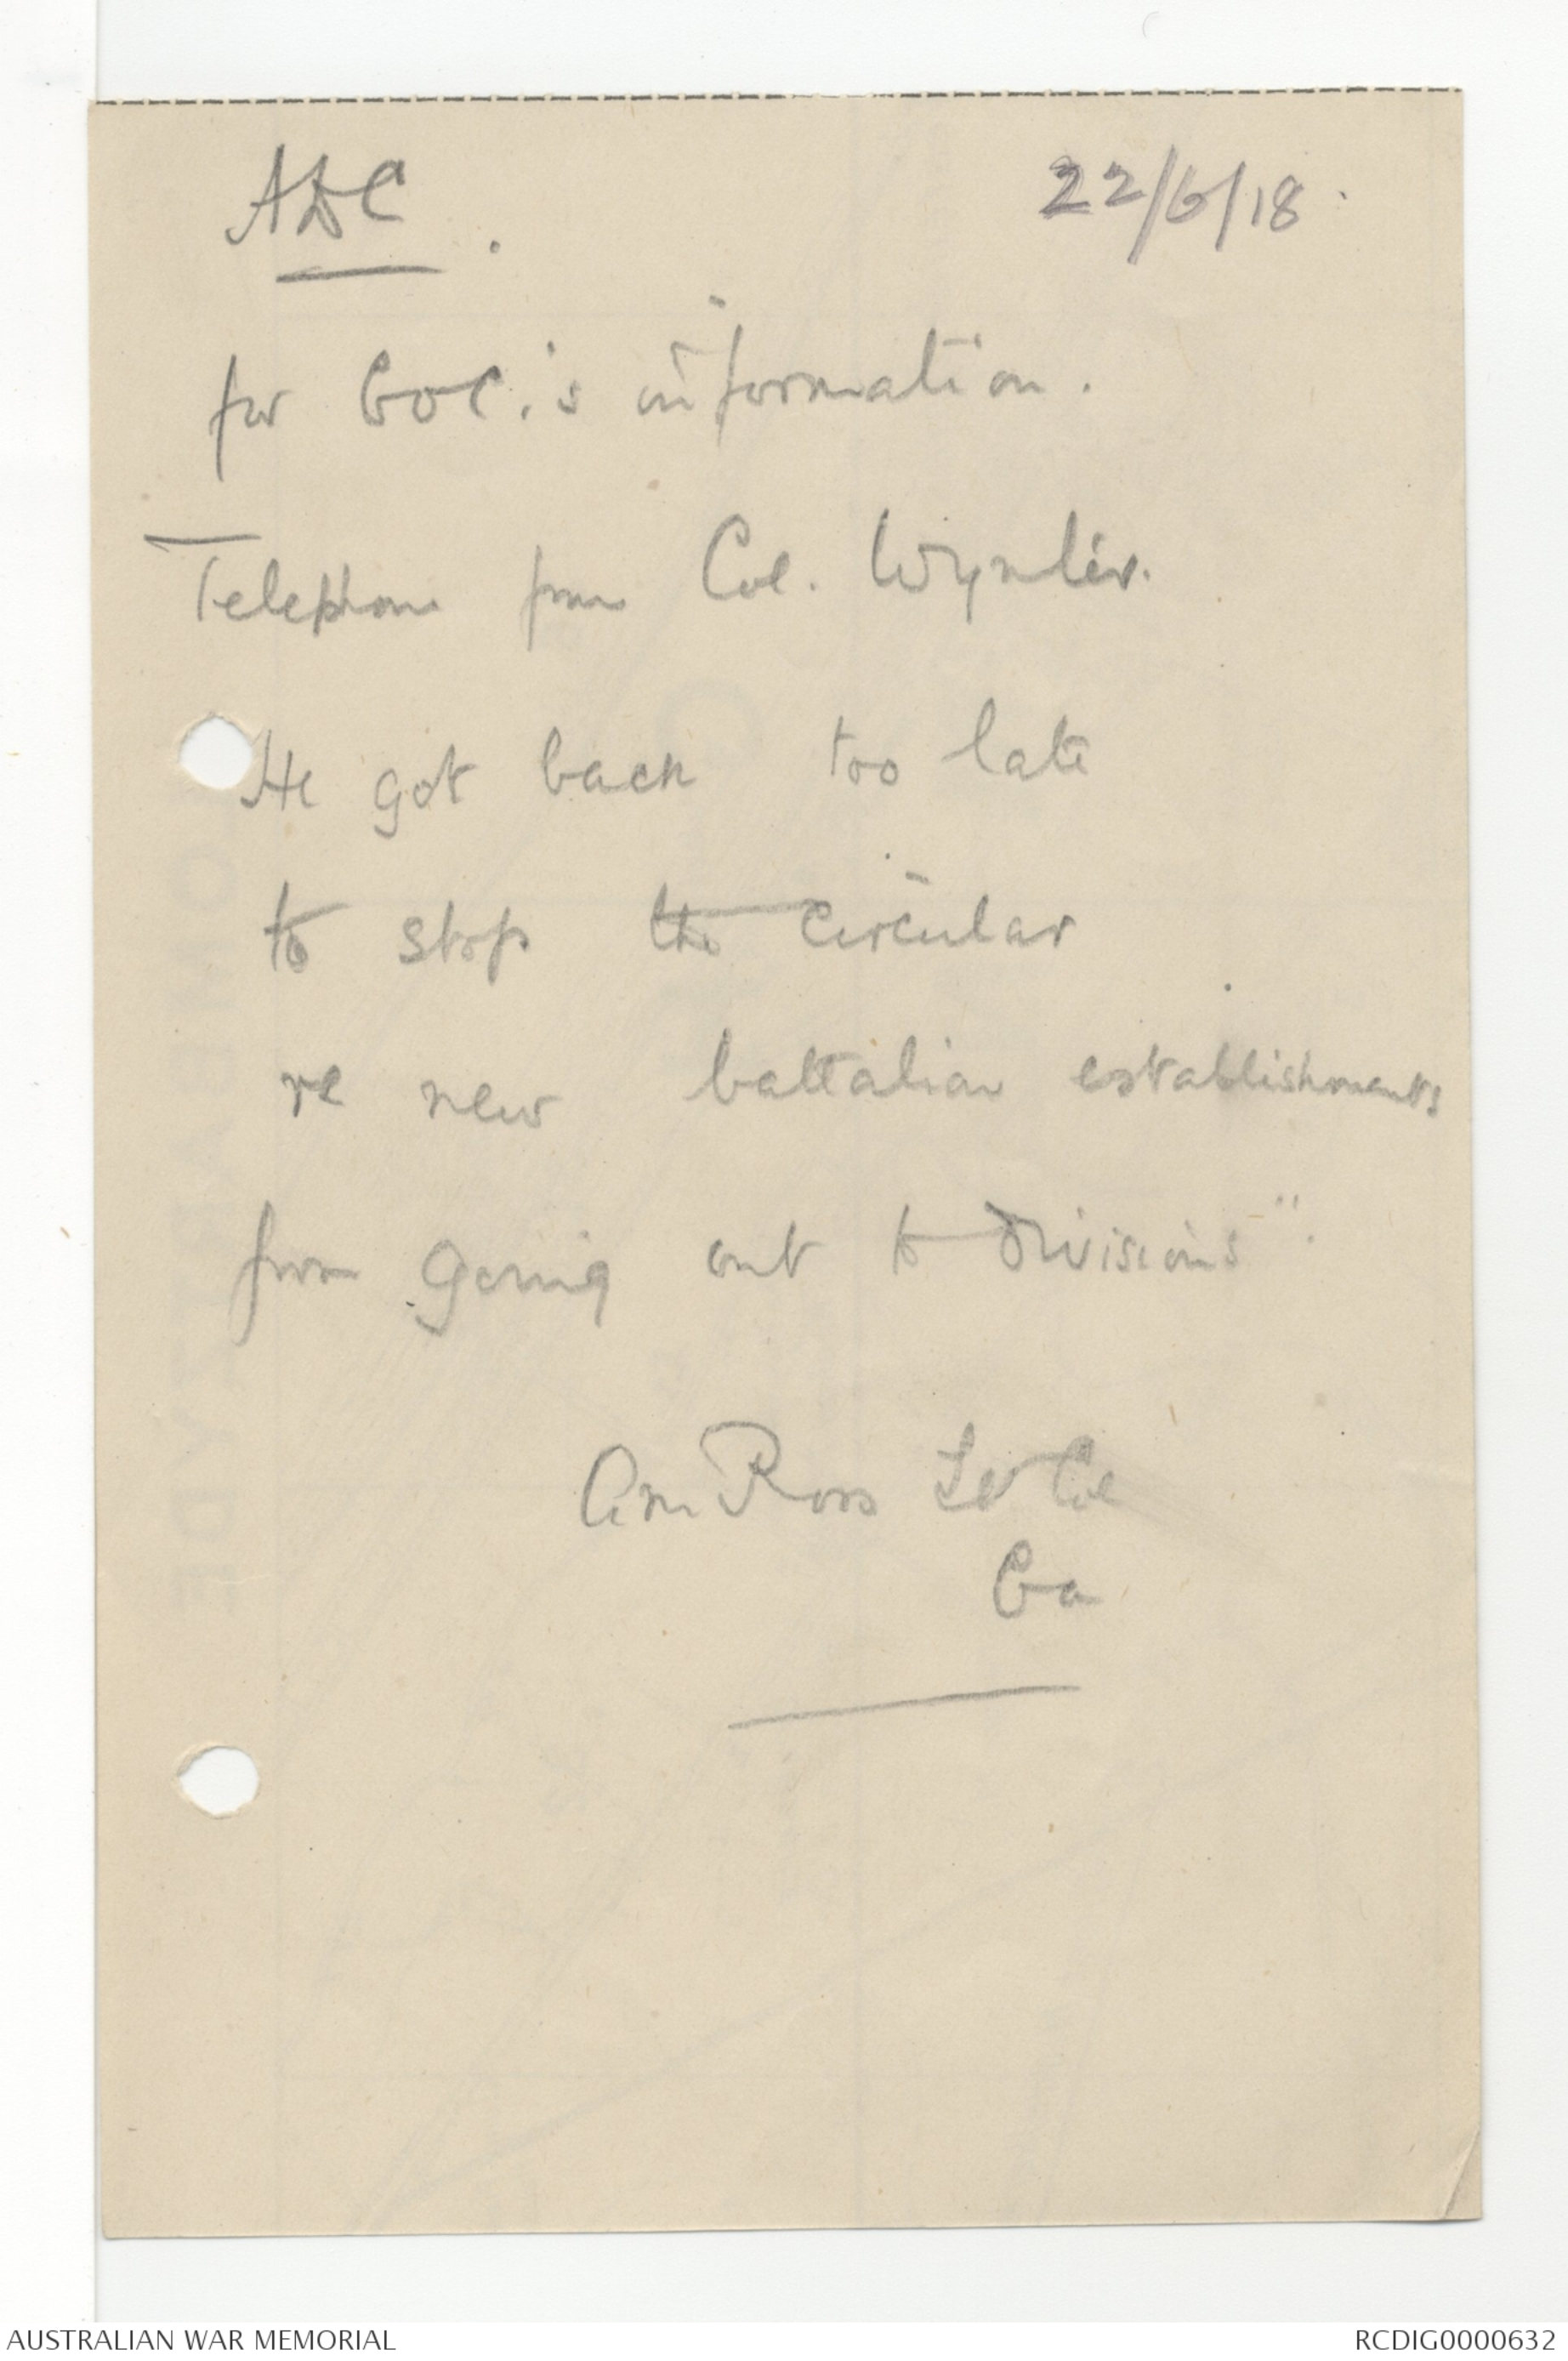 ADC. 22/6/18.
for GOC.'s information.
Telephone from Col. Wynter.
He got back too late
to stop the circular
re new battalion establishments
from going out to Divisions".
Am Ross Lt Col
GS
AUSTRALIAN WAR MEMORIAL
RCDIG0000632